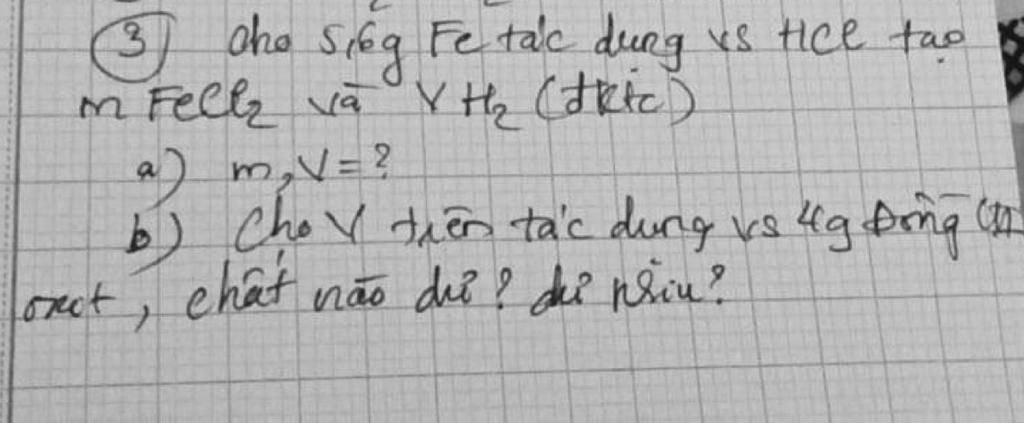 ③ Cho 5,6g Fe tác dụng vs HCl tạo
m FeCl₂ và V H₂ (đktc)
a) m, V = ?
b) Cho V trên tác dụng vs 4g Đồng (II
oxit, chất nào dư? dư nhiu?